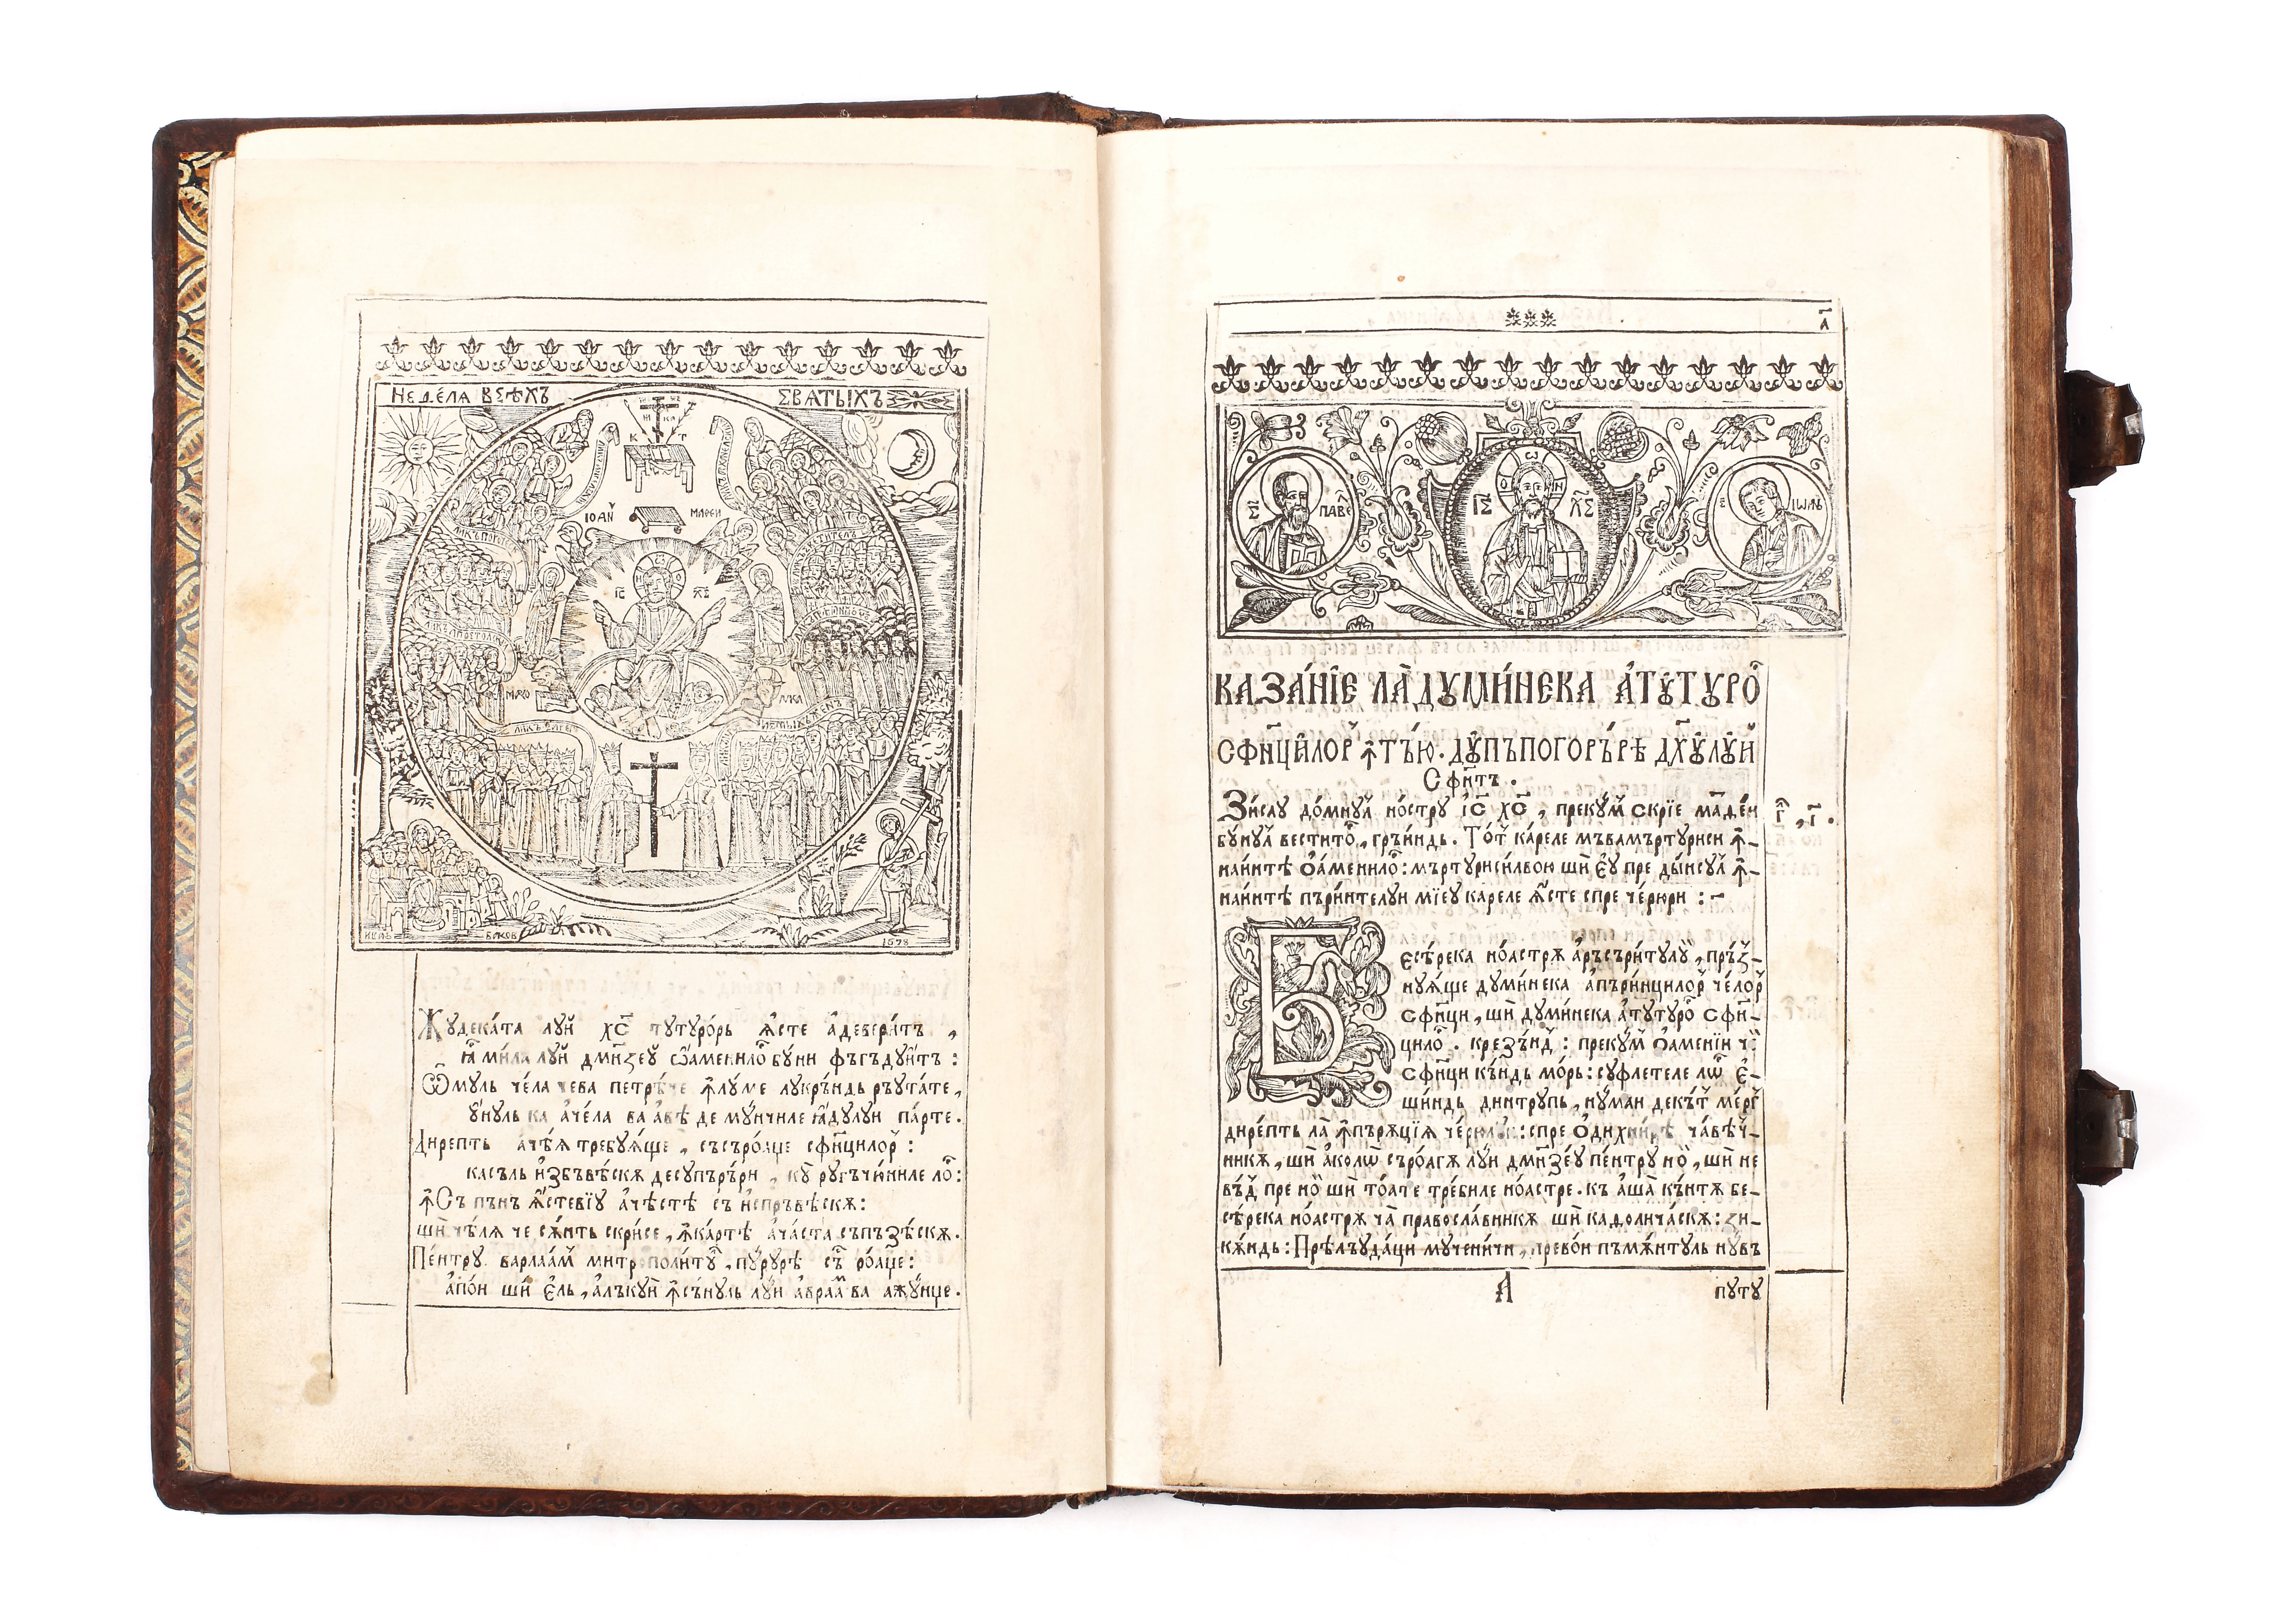 НЕДЕ́ЛА ВСѢ́ХЪ СВАТЫ́ХЪ
К Т
ІѠАН МАѲЕИ
І҃С Х҃С
МАРКО ЛУКА
ИВАН БАКОВ 1678
Жꙋдека́та лꙋй х҃с тꙋтꙋро́рь ꙗ҆́сте а҆девери́тъ ,
ꙗ҆́ ми́ла лꙋй дмнꙁеꙋ ѡ҆аменило́р бꙋ́ни фъгъдꙋи́тъ :
Ѡ҆мꙋль че́ла чева петрѣ́че ꙟ҆лꙋ́ме лꙋкрꙟ́ндь рѣꙋта́те ,
ꙋ҆́нꙋль ка а҆че́ла ва а҆вѣ́ де мꙋ́нчиле ꙗ҆́дꙋлꙋи па́рте .
Дире́пть а҆чѣ́ѧ требꙋѧ́ще , съсъро́аще сфн҃цилор :
касъль и҆ꙁбъвѣ́скѫ десꙋпъръ́ри , кꙋ рꙋгъчю́ниле ло́р :
ꙟ҆Съ пѫнъ ꙗ҆́стевїꙋ а҆чѣ́стѣ съ и҆спръвѣ́скѫ :
ши чѣ́лѧ че сѫ́нть скри́се , ꙟ҆ка́ртѣ а҆ча́ста съпъꙁе́скѫ .
Пе́нтрꙋ варлаа́м митрополи́тꙋ , пꙋ́рꙋрѣ съ ро́аще :
а҆по́и ши є҆ль , а҆лъкꙋй ꙟ҆съ́нꙋль лꙋ́и а҆враа́м ва ажꙋ́нще .
а҃
С҃ ПАВЕЛ І҃С Х҃С ІѠАНЪ
КАꙀА́НЇЕ ЛА̀ ДꙊМИ́НЕКА А҆ТꙊТꙊРО́Р
СФН҃ЦИ́ЛОР ꙞТЪ́Ю . ДꙊПЪ ПОГОРЪ́РѢ ДХ҃ꙊЛꙊЙ
Сфн҃тъ .
Ꙁи́сау до́мнꙋл но́стрꙋ і҆с х҃с , прекꙋ́м скрїе матде́и г҃і , г҃ .
бꙋ́нꙋл вестито́р , грꙟ́индь . То́т ка́реле мъвамъртꙋриси ꙟ҆-
наи́нтѣ ѻ҆аменило́р : мъртꙋриси́лвои ши є҆ꙋ пре дынсꙋл ꙟ҆-
наи́нтѣ пъри́нтелꙋи мїеꙋ кареле ꙗ҆́сте спре че́рюри : -
Бесѣ́река но́астрѫ а҆ръсъри́тꙋлꙋи , прѣꙁ-
нꙋѧ́ще дꙋми́нека а҆пъри́нцилор че́лор
сфн҃ци , ши дꙋми́нека а҆тꙋтꙋро́р сфи-
цило́р . креꙁъ́нд : прекꙋ́м ѻ҆амени́и чї
сфн҃ци кѫ́ндь мо́рь : сꙋфлетеле ло́р є҆-
ши́ндь динтрꙋпь , нꙋ́маи декѫ́т ме́рг
дире́пть ла ꙟ҆пъръцїѧ че́рюлꙋи : спре ѻ҆ди́хнирѣ ча́вѣч-
никѫ , ши а҆колѡ съро́агѫ лꙋ́и дмнꙁе́ꙋ пе́нтрꙋ но́и , ши не
въ́д пре но́и ши то́ате тре́биле но́астре . къ а҆ша́ кѫ́нтѫ бе-
сѣ́река но́астрѫ ча́ правосла́вникѫ ши кадолича́скѫ : ꙁи-
кѫ́ндь : Прѣлъꙋда́ци мꙋчени́чи , превои пъмѫ́нтꙋль нꙋвъ
А пꙋтꙋ